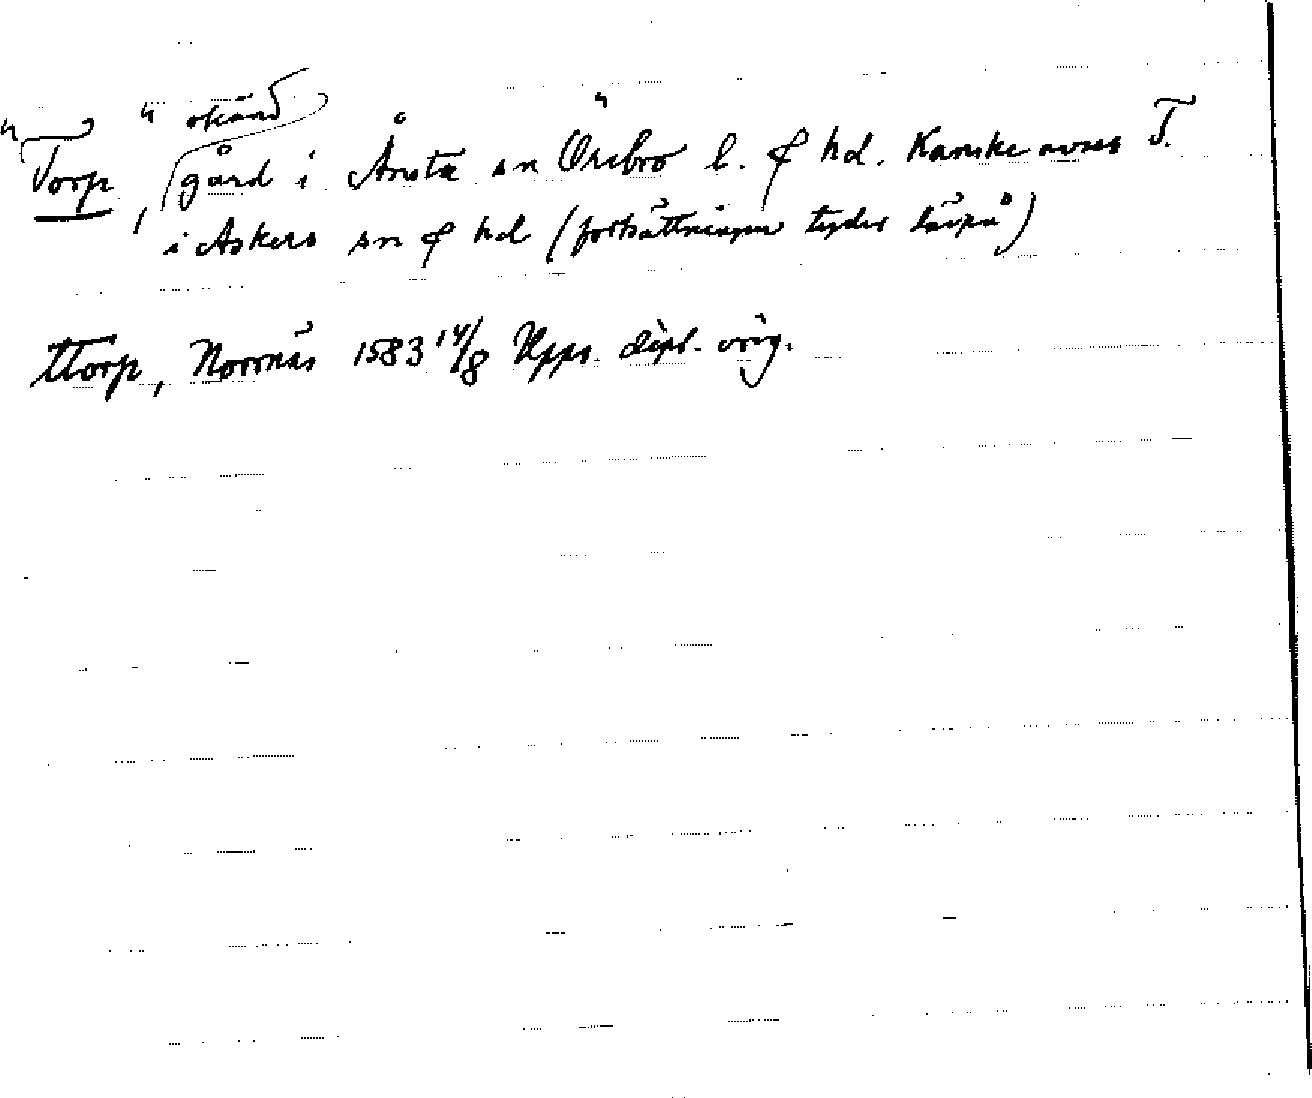 "Torp", okänd gård i Ånsta sn Örebro l. o hd. Kanske avses T.
i Askers sn o hd (fortsättningen tyder därpå)
ttorp, Norrnäs 1583 14/8 Upps. dipl. orig.